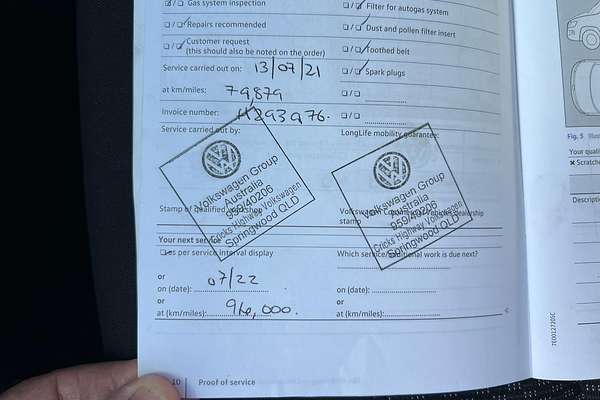 Gas system inspection
Filter for autogas system
Repairs recommended
Dust and pollen filter insert
Customer request
(this should also be noted on the order)
Toothed belt
Service carried out on: 13/07/21
Spark plugs
at km/miles: 79,879
Invoice number:
Service carried out by:
LongLife mobility guarantee:
Volkswagen Group
Australia
959/40206
Cricks Highway Volkswagen
Springwood QLD
Volkswagen Group
Australia
959/40206
Cricks Highway Volkswagen
Springwood QLD
Stamp of qualified workshop
stamp
Your next service
as per service interval display
Which service/additional work is due next?
or
on (date): 07/22
on (date):
or
or
at (km/miles):
at (km/miles):
10 Proof of service
7E0012720SC
Fig. 5
Your
× Scratche
Descripti